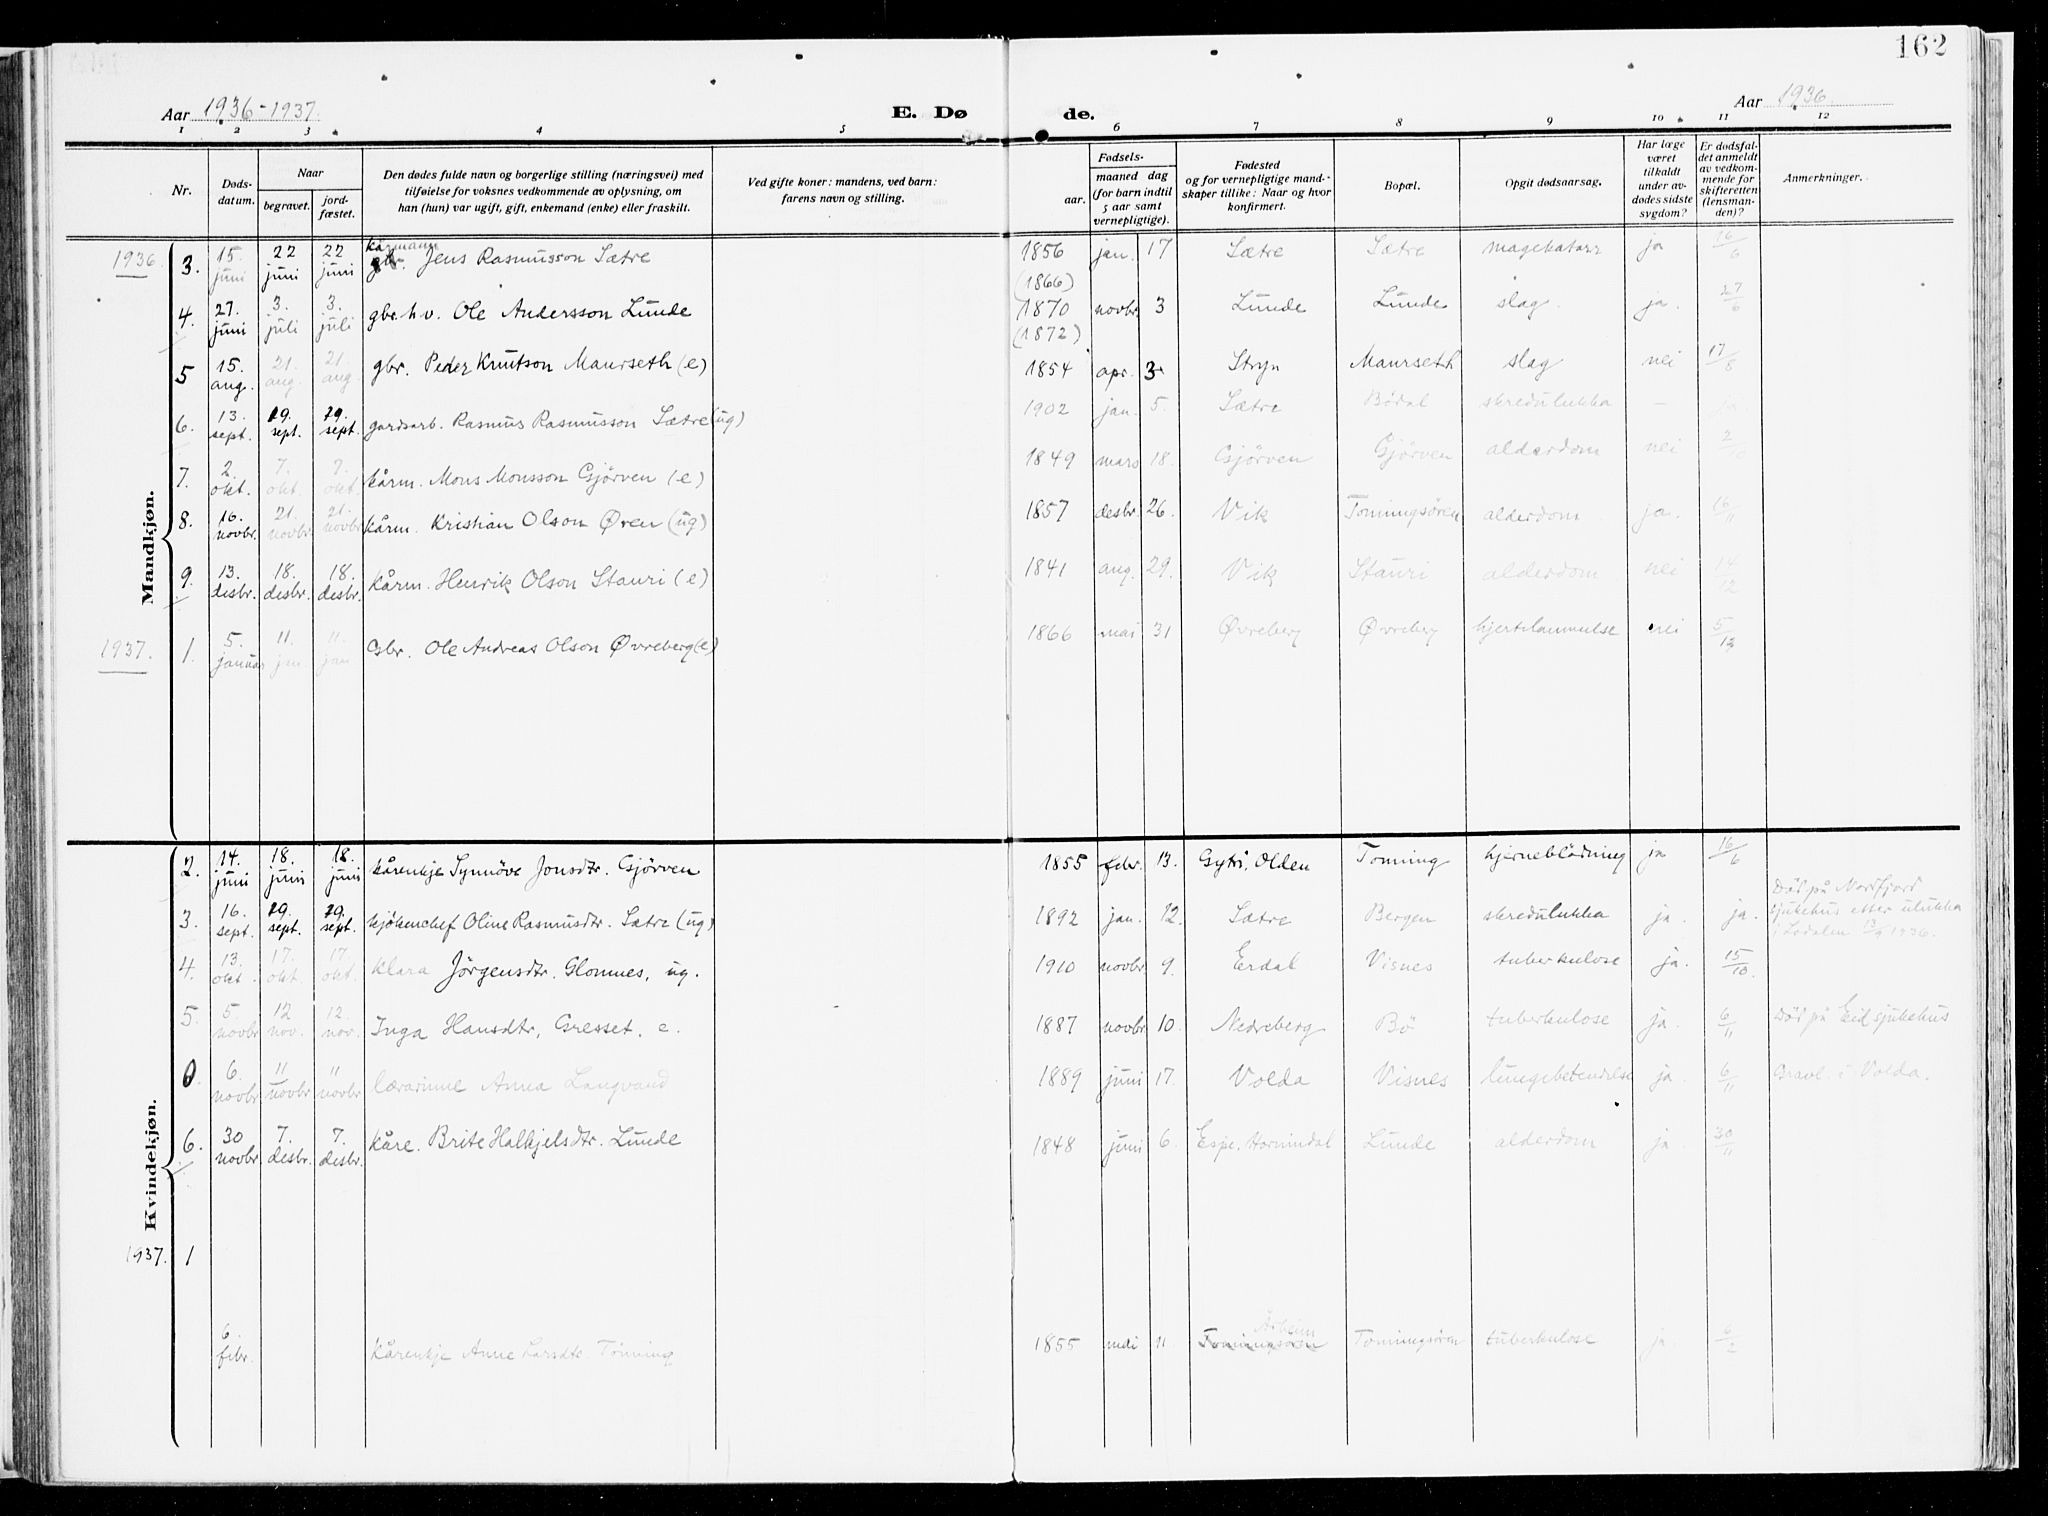 162
Aar 1936-1937.
E. Døde.
Aar 1936.
1 2 3 4 5 6 7 8 9 10 11 12
Nr.
Døds-
datum.
Naar
begravet.
jord-
fæstet.
Den dødes fulde navn og borgerlige stilling (næringsvei) med
tilføielse for voksnes vedkommende av oplysning, om
han (hun) var ugift, gift, enkemand (enke) eller fraskilt.
Ved gifte koner: mandens, ved barn:
farens navn og stilling.
Fødsels-
aar.
maaned dag
(for barn indtil
5 aar samt
vernepligtige).
Fødested
og for vernepligtige mand-
skaper tillike: Naar og hvor
konfirmert.
Bopæl.
Opgit dødsaarsag.
Har læge
været
tilkaldt
under av-
dødes sidste
sygdom?
Er dødsfal-
det anmeldt
av vedkom-
mende for
skifteretten
(lensman-
den)?
Anmerkninger.
Mandkjøn.
1936. 3. 15. juni 22 juni 22 juni kårmann Jens Rasmusson Sætre 1856 (1866) jan. 17 Sætre Sætre magekatarr ja 16/6
4. 27. juni 3. juli 3. juli gbr. h.v. Ole Andersson Lunde 1870 (1872) novbr. 3 Lunde Lunde slag. ja. 27/6
5 15. aug. 21. aug. 21. aug gbr. Peder Knutson Maurseth (e) 1854 apr. 3 Stryn Maurseth slag nei 17/8
6. 13. sept. 29. sept. 29. sept. gardsarb. Rasmus Rasmusson Sætre (ug) 1902 jan. 5. Sætre Bødal skredulukka —
7. 2. okt. 7. okt. 7. okt. kårm. Mons Monsson Gjørven (e) 1849 mars 18. Gjörven Gjörven alderdom nei 2/10
8. 16. novbr. 21. novbr. 21. novbr. kårm. Kristian Olson Øren (ug) 1857 desbr. 26. Vik Tonningsören alderdom ja. 16/11
9. 13. desbr. 18. desbr. 18. desbr. kårm. Henrik Olson Stauri (e) 1841 aug. 29. Vik Stauri alderdom nei 14/12
1937. 1. 5. januar 11. jan 11. jan Gbr. Ole Andreas Olson Øvreberg (e) 1866 mai 31 Øvreberg Øvreberg hjertelammelse nei 5/12
Kvindekjøn.
2. 14. juni 18. juni 18. juni kårenkje Synnöve Jonsdtr. Gjörven 1855 febr. 13. Gytri, Olden Tonning hjerneblödning ja 16/6
3. 16. sept. 29. sept. 29. sept. kjökenchef Oline Rasmusdtr. Sætre (ug) 1892 jan. 12. Sætre Bergen skredulukka ja. ja. Död på Nordfjord
sjukehus etter ulukka
i Lodalen 13/9 1936.
4. 13. okt. 17. okt. 17. okt. Klara Jörgensdtr. Glomnes, ug. 1910 novbr. 9. Erdal Visnes tuberkulose ja. 15/10.
5. 5. novbr 12 nov. 12. nov. Inga Hansdtr. Gresset. e. 1887 novbr 10. Nedreberg Bö tuberkulose ja. 6/11 Död på Eid sjukehus
0. 6. novbr 11 novbr. 11 novbr lærarinne Anna Langvand 1889 juni 17. Volda Visnes lungebetendelse ja. 6/11 Gravl. i Volda.
6. 30 novbr 7. desbr. 7. desbr. kåre. Brite Halkjelsdtr. Lunde 1848 juni 6. Espe, Hornindal Lunde alderdom ja. 30/11
1937. 1
6. febr. kårenkje Anne Larsdtr. Tonning 1855 mai 11. Tonningsören Årheim Tonningsören tuberkulose ja. 6/2